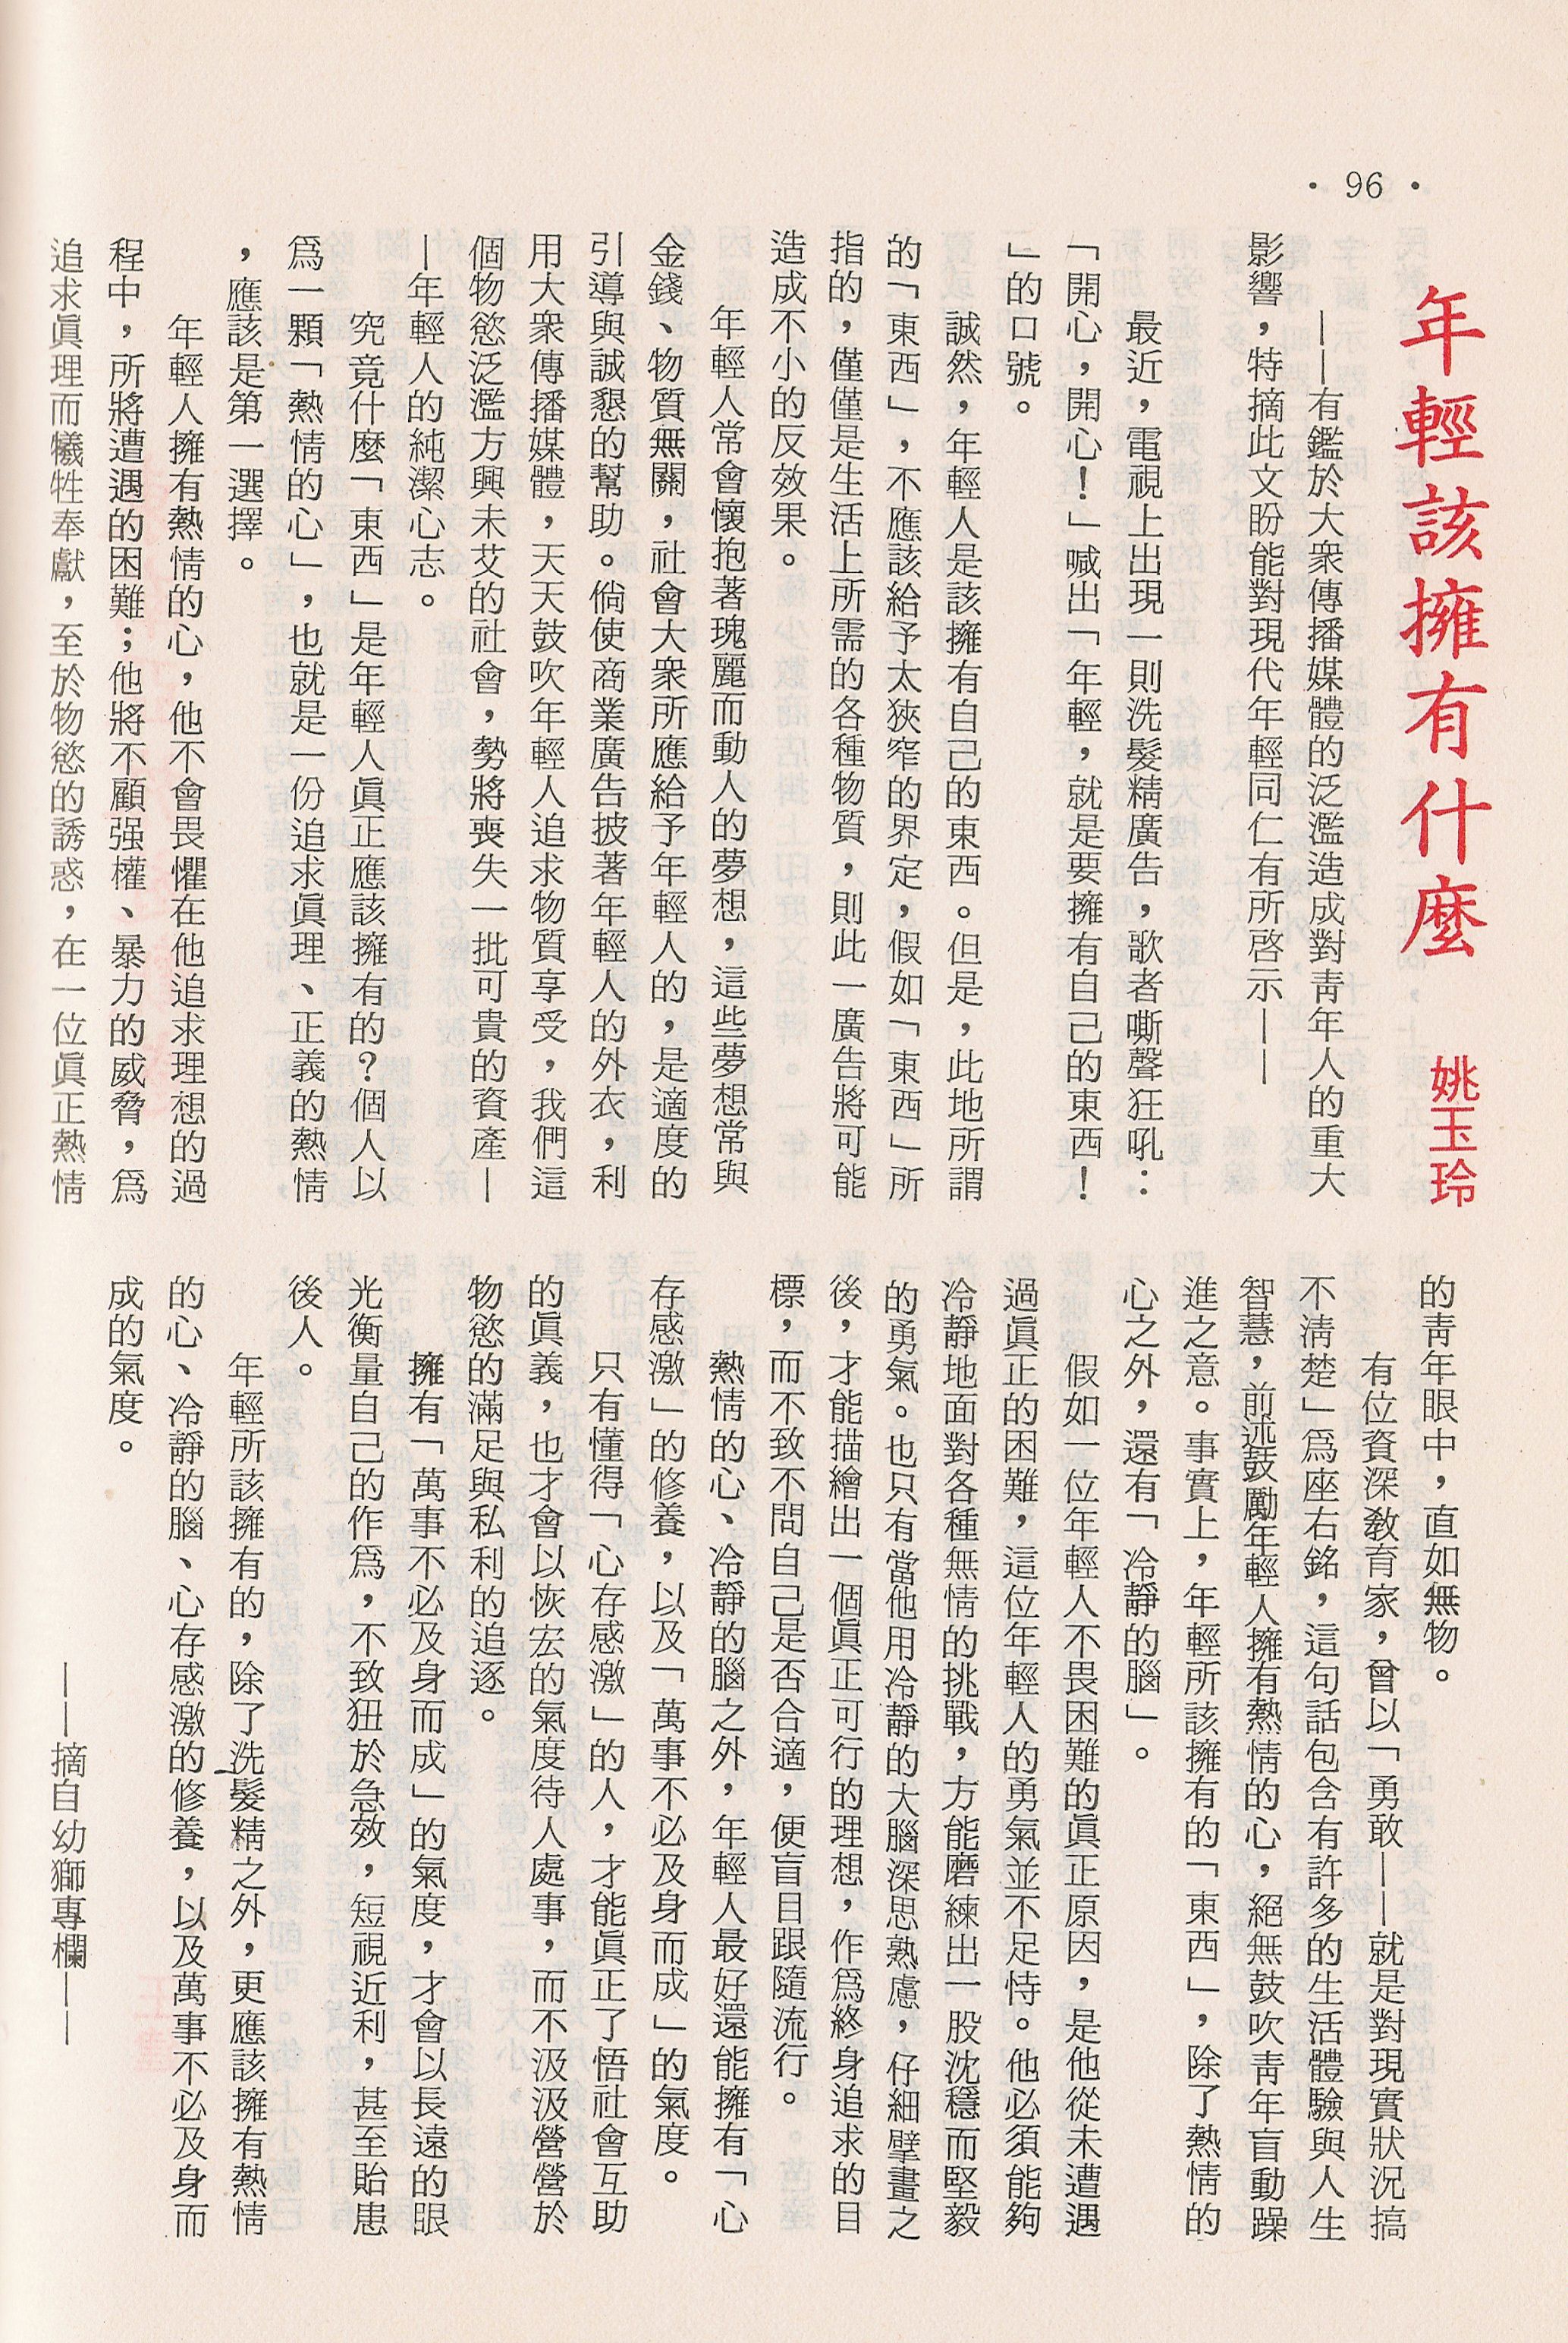 • 96 •
年輕該擁有什麼
姚玉玲
——有鑑於大衆傳播媒體的泛濫造成對靑年人的重大
影響，特摘此文盼能對現代年輕同仁有所啓示——
最近，電視上出現一則洗髮精廣告，歌者嘶聲狂吼：
「開心，開心！」喊出「年輕，就是要擁有自己的東西！
」的口號。
誠然，年輕人是該擁有自己的東西。但是，此地所謂
的「東西」，不應該給予太狹窄的界定，假如「東西」所
指的，僅僅是生活上所需的各種物質，則此一廣告將可能
造成不小的反效果。
年輕人常會懷抱著瑰麗而動人的夢想，這些夢想常與
金錢、物質無關，社會大衆所應給予年輕人的，是適度的
引導與誠懇的幫助。倘使商業廣告披著年輕人的外衣，利
用大衆傳播媒體，天天鼓吹年輕人追求物質享受，我們這
個物慾泛濫方興未艾的社會，勢將喪失一批可貴的資產—
—年輕人的純潔心志。
究竟什麼「東西」是年輕人眞正應該擁有的？個人以
爲一顆「熱情的心」，也就是一份追求眞理、正義的熱情
，應該是第一選擇。
年輕人擁有熱情的心，他不會畏懼在他追求理想的過
程中，所將遭遇的困難；他將不顧强權、暴力的威脅，爲
追求眞理而犧牲奉獻，至於物慾的誘惑，在一位眞正熱情
的靑年眼中，直如無物。
有位資深敎育家，曾以「勇敢——就是對現實狀況搞
不淸楚」爲座右銘，這句話包含有許多的生活體驗與人生
智慧，前述鼓勵年輕人擁有熱情的心，絕無鼓吹靑年盲動躁
進之意。事實上，年輕所該擁有的「東西」，除了熱情的
心之外，還有「冷靜的腦」。
假如一位年輕人不畏困難的眞正原因，是他從未遭遇
過眞正的困難，這位年輕人的勇氣並不足恃。他必須能夠
冷靜地面對各種無情的挑戰，方能磨練出一股沈穩而堅毅
的勇氣。也只有當他用冷靜的大腦深思熟慮，仔細擘畫之
後，才能描繪出一個眞正可行的理想，作爲終身追求的目
標，而不致不問自己是否合適，便盲目跟隨流行。
熱情的心、冷靜的腦之外，年輕人最好還能擁有「心
存感激」的修養，以及「萬事不必及身而成」的氣度。
只有懂得「心存感激」的人，才能眞正了悟社會互助
的眞義，也才會以恢宏的氣度待人處事，而不汲汲營營於
物慾的滿足與私利的追逐。
擁有「萬事不必及身而成」的氣度，才會以長遠的眼
光衡量自己的作爲，不致狃於急效，短視近利，甚至貽患
後人。
年輕所該擁有的，除了洗髮精之外，更應該擁有熱情
的心、冷靜的腦、心存感激的修養，以及萬事不必及身而
成的氣度。
——摘自幼獅專欄——